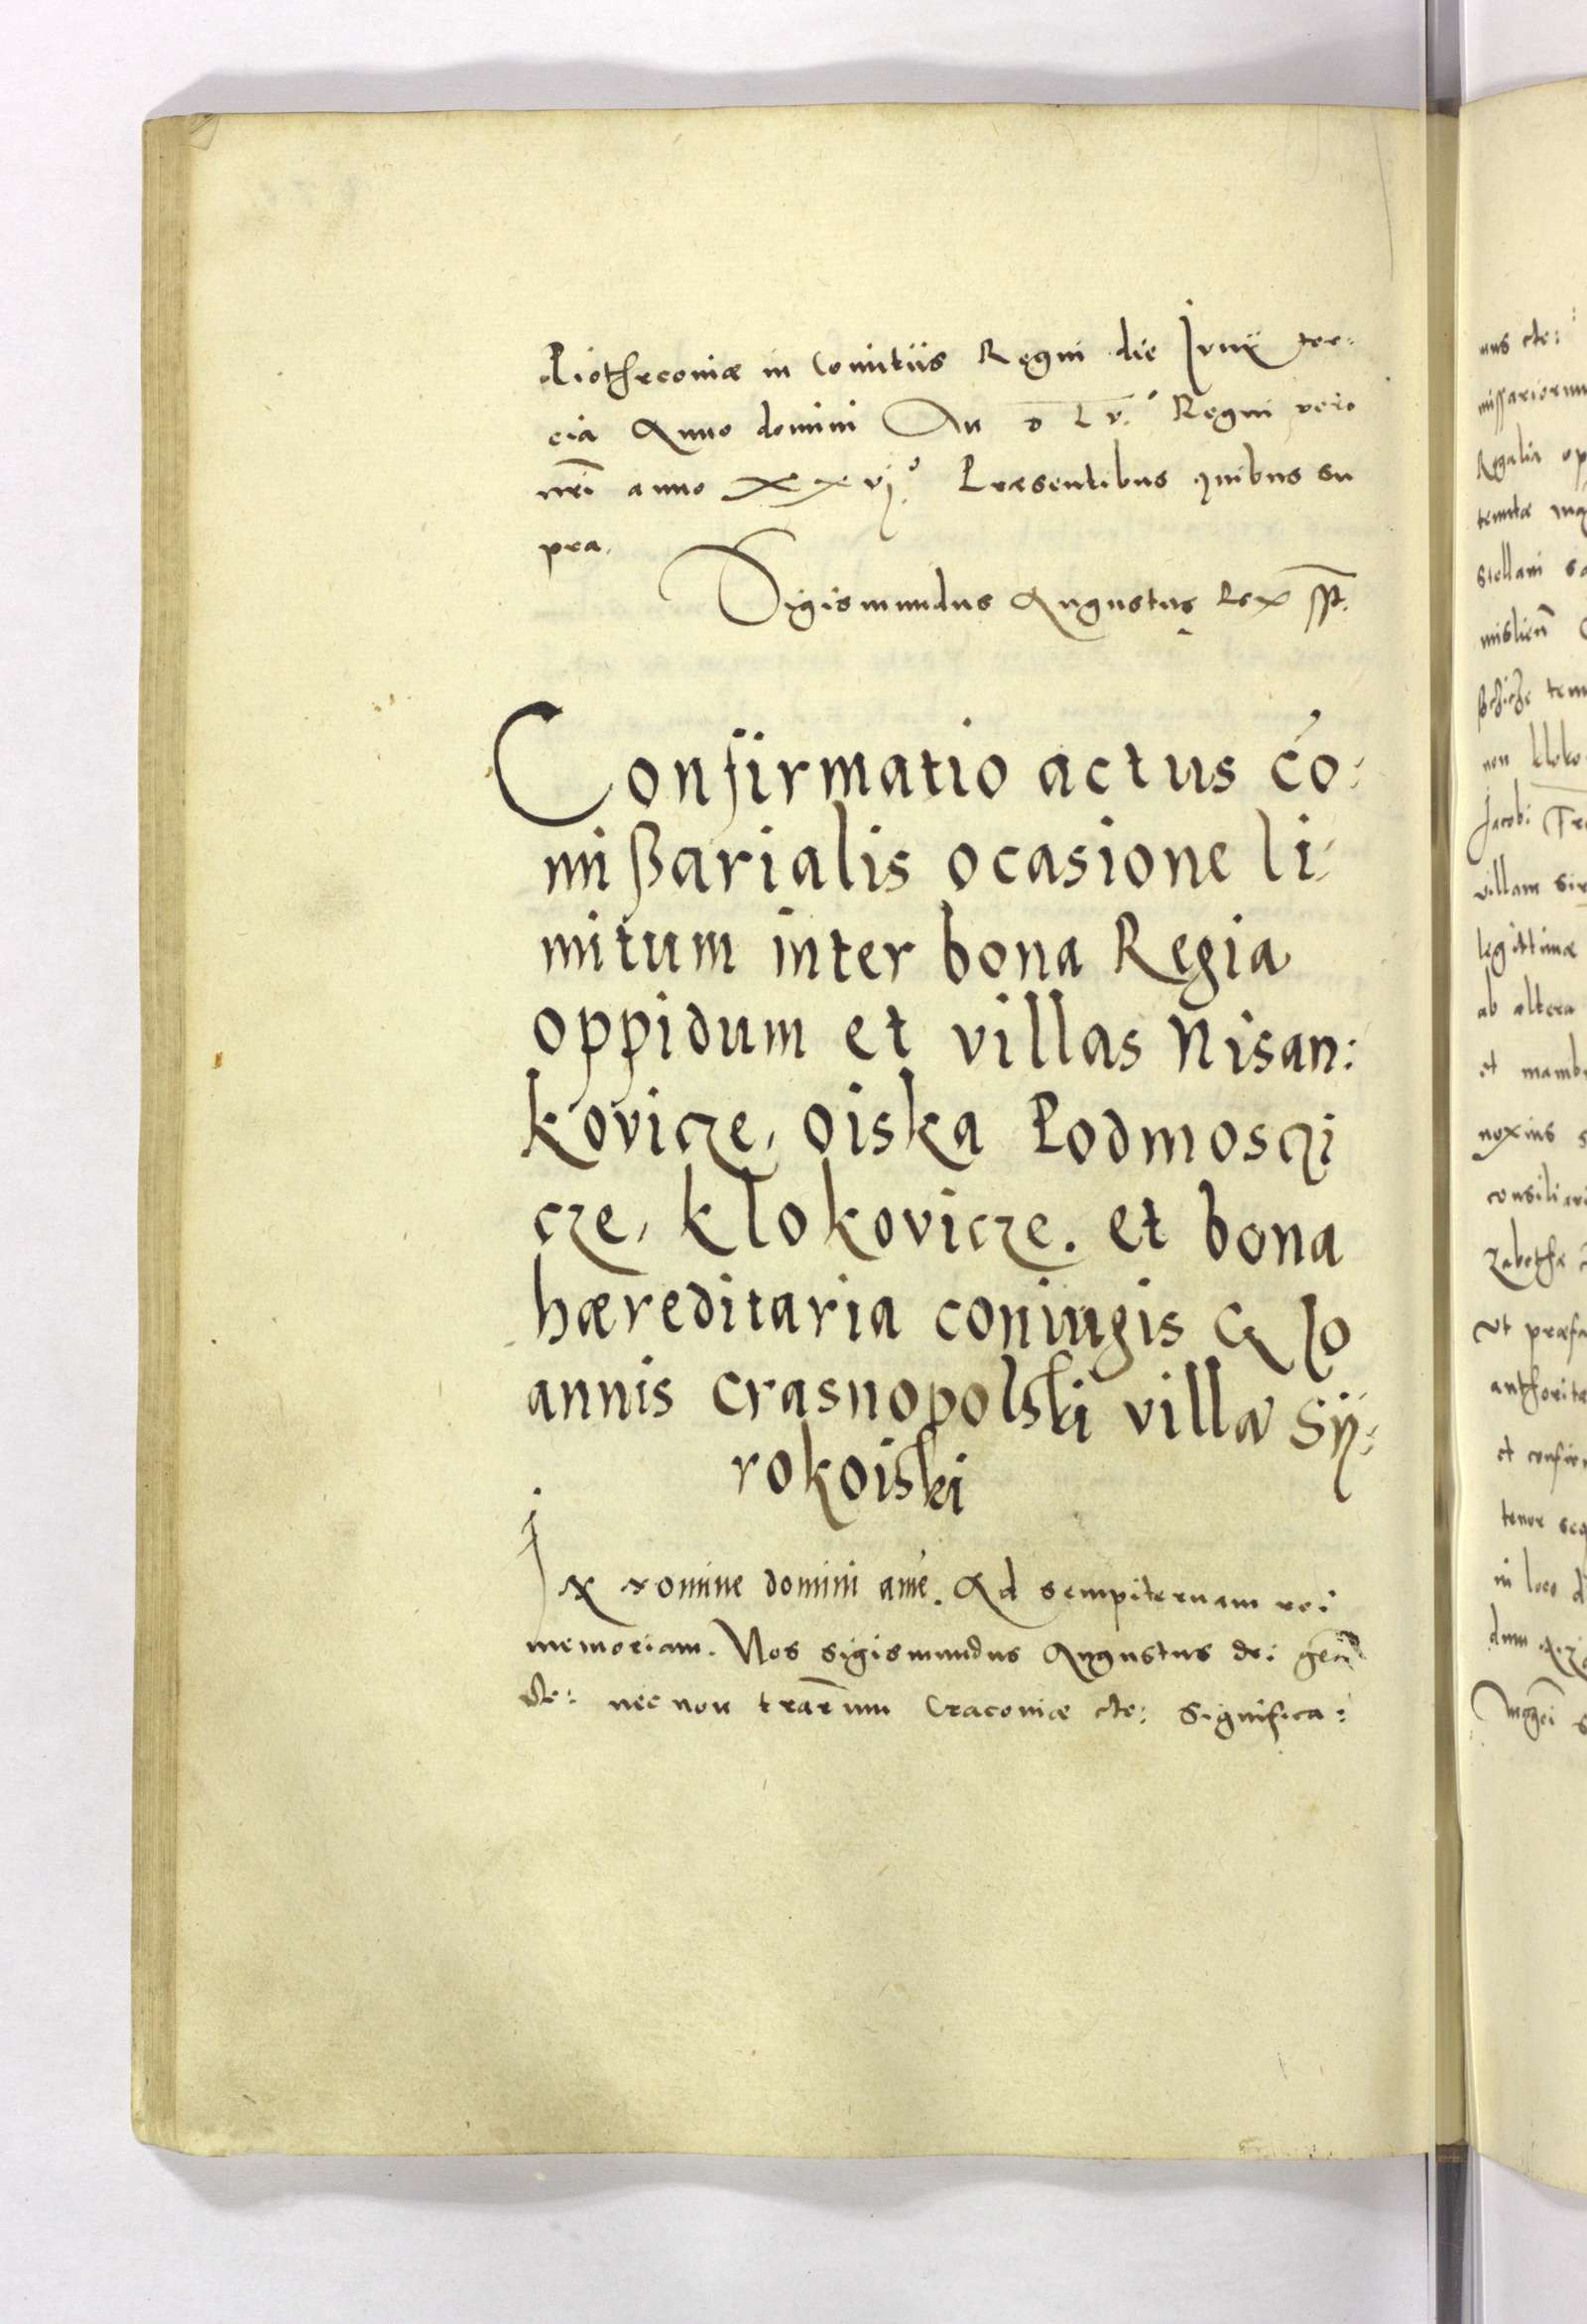 Piothrcoviæ in Comitiis Regni die Junij ter:
cia Anno domini M D L v.º Regni vero
nr̃i anno xxvj.º Præsentibus quibus su
pra.
Sigismundus Augustus Rex sspt.
Confirmatio actus cõ:
mißarialis ocasione li:
mitum inter bona Regia
oppidum et villas Nisan:
kovicze, oiska Podmosczi
cze, klokovicze. et bona
hæreditaria coniugis G Jo
annis Crasnopolski villæ Sÿ:
rokoiski
In nomine domini amẽ. Ad sempiternam rei
memoriam. Nos Sigismundus Augustus dei gr̃a
etc: nec non trãrum Cracoviæ etc: Significa:
mus etc:
missariorum
Regalia op
tenutæ
stellani sa
mislień
non kloko
Jacobi Tr
villam sir
legittimæ
ab altera
et mamb
noxius s
consiliari
Ut præfa
authorita
et confir
tenor seq
in loco d
dum